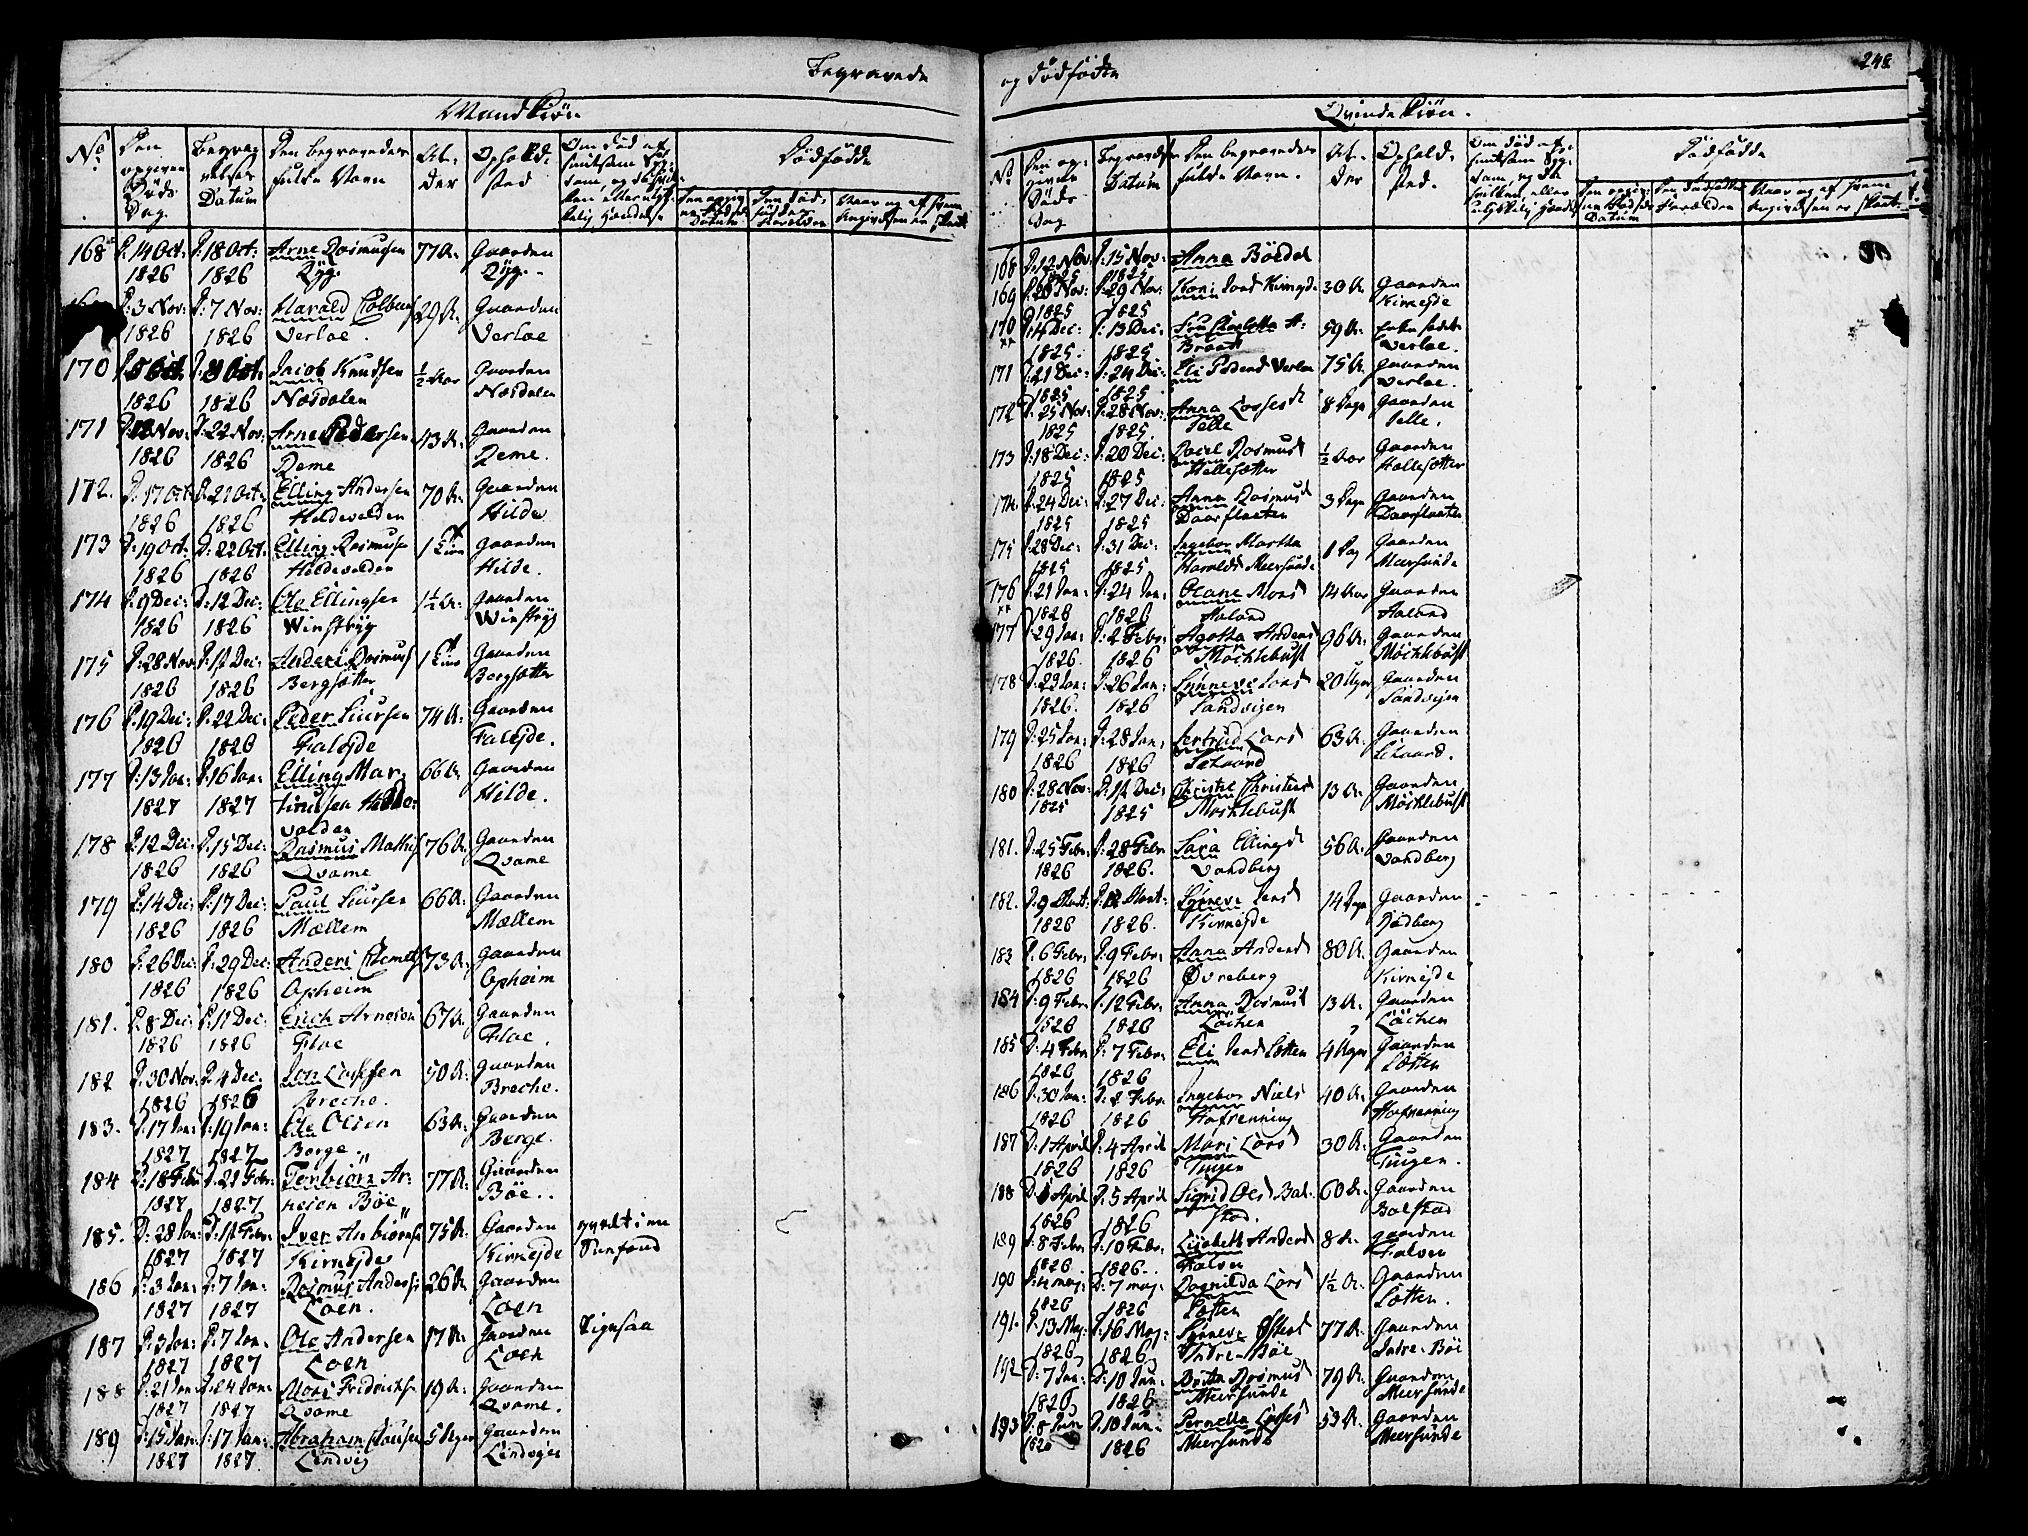 Begravede
Mandkiön
No
Den opgivne Døds Dag
Begravelses Datum
Den begravedes fulde Navn
Alder
Opholdssted
Dødfødde
168 D: 14 Oct: 1826 D: 18 Oct: 1826 Arne Rasmusen Ryg. 77 A: Gaarden Ryg.
D: 3 Nov: 1826 D: 7 Nov: 1826 Harald Verloe. 29 A: Gaarden Verloe
170 1826 1826 Jacob Knudsen Næsdalen ½ Aar Gaarden Næsdalen
171 Nov: 1826 D: 22 Nov: 1826 Arne Pedersen Reme 43 A: Gaarden Reme.
172. D: 17 Oct: 1826 D: 21 Oct: 1826 Elling Andersen Hildevolden 70 A: Gaarden Hilde
173 D: 19 Oct: 1826 D: 22 Oct: 1826 Elling Rasmusen Hildevolden Gaarden Hilde.
174 D: 9 Dec: 1826 D: 12 Dec: 1826 Ole Ellingsen Winstryg 1½ A: Gaarden Winstryg
175 D: 28 Nov: 1826 D: 1st Dec: 1826 Anders Rasmus Bergsætter Gaarden Bergsætter
176 D: 19 Dec: 1826 D: 22 Dec: 1826 Peder Siursen Faleyde 74 A: Gaarden Faleyde.
177 D: 13 Jan: 1827 D: 16 Jan: 1827 Elling Martinusen Hildevolden 66 A: Gaarden Hilde.
178 D: 12 Dec: 1826 D: 15 Dec: 1826 Rasmus Mathis Qvame 76 A: Gaarden Qvame
179 D: 14 Dec: 1826 D: 17 Dec: 1826 Paul Siursen Mællem 66 A: Gaarden Mællem
180 D: 26 Dec: 1826 D: 29 Dec: 1826 Anders Opheim 73 A: Gaarden Opheim
181. D: 8 Dec: 1826 D: 11 Dec: 1826 Erich Arneson Floe 67 A: Gaarden Floe.
182 D: 30 Nov: 1826 D: 4 Dec: 1826 Breche. 50 A: Gaarden Breche.
183. D: 17 Jan: 1827 D: 19 Jan: 1827 Ole Olsen Berge 63 A: Gaarden Berge.
184 D: 18 Febr 1827 D: 21 Febr: 1827 Torbiörn Arnesen Böe 77 A: Gaarden Böe..
185. D: 28 Jan: 1827 D: 1st Febr: 1827 Iver Anbiörnsen Kirneyde 75 A: Gaarden Kirneyde
186 D: 3 Jan: 1827 D: 7 Jan: 1827 Rasmus Andersen Loen. 26 A: Gaarden Loen
187 D: 3 Jan: 1827 D: 7 Jan: 1827 Ole Andersen Loen 17 A: Gaarden Loen Ligesaa
188 D: 21 Jan: 1827 D: 24 Jan: 1827 Mons Fridrichsen Qvame 19 A: Gaarden Qvame.
189 D: 15 Jan: 1827 D: 17 Jan: 1827 Abraham Clausen Lindvig 5 Uger Gaarden Lindvigen
og dødfødte
248
Qvindekiön.
No
Den opgivne Døds Dag
Begravelses Datum
Den begravedes fulde Navn.
Alder
Opholdssted.
Dødfødde
168 D: 12 Nov: 1825 D: 15 Nov: 1825 Anna Böedal
169 D: 26 Nov: 1825 D: 29 Nov: 1825 Kari Kirneyde 30 A: Gaarden Kirneyde
170 D: 4 Dec: 1825. D: 13 Dec: 1825 Fru Charlotta A: Brandt 59 A: Verloe.
171 D: 21 Dec: 1825 D: 24 Dec: 1825 Eli Pedersd Verloe 75 A: Gaarden Verloe.
172 D: 25 Nov: 1825 D: 28 Nov: 1825 Anna Lassesd Selle 8 Dage Gaarden Selle.
173 D: 18 Dec: 1825 D: 20 Dec: 1825 Rasmusd Hellesætter ½ Aar Gaarden Hellesætter
174. D: 24 Dec: 1825 D: 27 Dec: 1825 Anna Rasmusd Daarflaaten 3 Dage Gaarden Daarflaaten
175 D: 28 Dec: 1825 D: 31 Dec: 1825 Ingebor Martha Haraldsd Meersunde 1 Dag Gaarden Meersunde
176 D: 21 Jan: 1826 D: 24 Jan: 1826 Oliane Monsd Aaland 14 Aar Gaarden Aaland
177 D: 29 Jan: 1826. D: 2 Febr: 1826 Agatha Andersd Möchlebust 96 A: Gaarden Möchlebust
178 D: 23 Jan: 1826. D: 26 Jan: 1826 Synneve Larsd Sandvigen 20 Uger Gaarden Sandvigen
179 D: 25 Jan: 1826 D: 28 Jan: 1826 Gertrud Larsd Schaard 63 A: Gaarden Schaard.
180 D: 28 Nov: 1825 D: 1st Dec: 1825 Christie Christensd Möchlebust 13 A: Gaarden Möchlebust
181. D: 25 Febr: 1826 D: 28 Febr 1826. Sara Ellingsd Vandberg 56 A: Gaarden Vandberg
182. D: 9 Mart: 1826 D: 12 Mart: 1826. Synneve Jensd Kirneyde 14 Dage Gaarden Rödberg
183 D: 6 Febr: 1826 D: 9 Febr: 1826 Anna Andersd Øvreberg 80 A: Gaarden Kirneyde
184 D: 9 Febr: 1826 D: 12 Febr: 1826 Anna Rasmusd Löchen 13 A: Gaarden Löchen
185 D: 4 Febr: 1826 D: 7 Febr: 1826 Eli Jensd Lotten 4 Uger Gaarden Lotten
186 D: 30 Jan: 1826 D: 2 Febr: 1826 Ingebor Nielsd Hofrenning 40 A: Gaarden Hofrenning
187 D: 1 April 1826 D: 4 April 1826 Mari Larsd Tuigen 30 A: Gaarden Tuigen.
188 April 1826 D: 5 April 1826 Sigrid Olesd Balstad. 60 A: Gaarden Balstad
189 D: 8 Febr 1826. D: 10 Febr: 1826. Lisabeth Andersd Falven 8 A: Gaarden Falven
190 D: 4 Maj: 1826 D: 7 Maj: 1826 Ragnilda Larsd Lotten 1½ A: Gaarden Lotten.
191. D: 13 Maj: 1826 D: 16 Maj: 1826 Synneve Indre-Böe 77 A: Gaarden Indre-Böe
192 D: 7 Jun: 1826 D: 10 Jun: 1826 Brita Rasmusd Meersunde 79 A: Gaarden Meersunde
193 D: 8 Jun 1826 D: 10 Jun: 1826 Pernella Lassesd Meersunde 53 A: Gaarden Meersunde